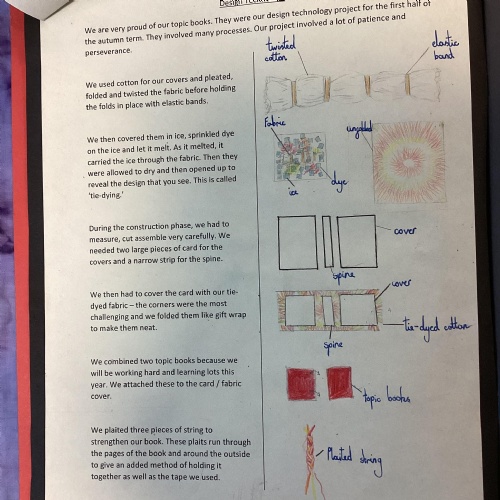 Design Techn
We are very proud of our topic books. They were our design technology project for the first half of
the autumn term. They involved many processes. Our project involved a lot of patience and
perseverance.
twisted
cotton
elastic
band
We used cotton for our covers and pleated,
folded and twisted the fabric before holding
the folds in place with elastic bands.
Fabric
unfolded
We then covered them in ice, sprinkled dye
on the ice and let it melt. As it melted, it
carried the ice through the fabric. Then they
were allowed to dry and then opened up to
reveal the design that you see. This is called
'tie-dying.'
ice
dye
During the construction phase, we had to
measure, cut assemble very carefully. We
needed two large pieces of card for the
covers and a narrow strip for the spine.
cover
spine
We then had to cover the card with our tie-
dyed fabric – the corners were the most
challenging and we folded them like gift wrap
to make them neat.
cover
tie-dyed cotton
spine
We combined two topic books because we
will be working hard and learning lots this
year. We attached these to the card / fabric
cover.
topic books
We plaited three pieces of string to
strengthen our book. These plaits run through
the pages of the book and around the outside
to give an added method of holding it
together as well as the tape we used.
Plaited string